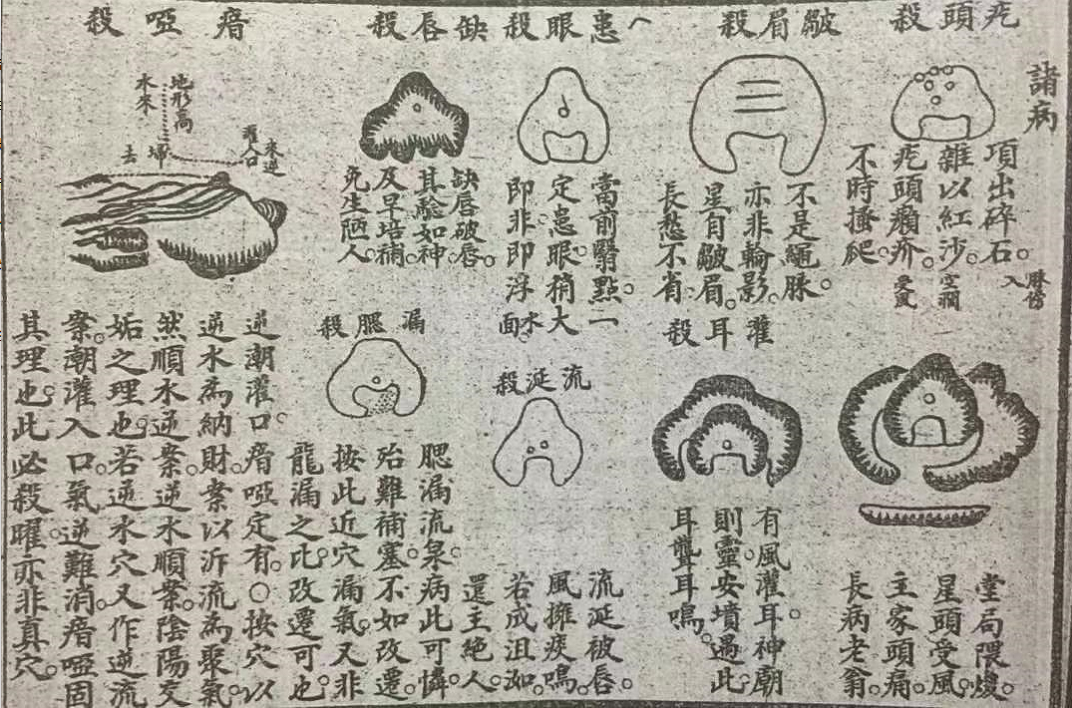 諸病
疙頭殺
項出碎石。
雜以紅沙。
疙頭癩疥。
不時搔爬。
皺眉殺
不是繩脉。
亦非輪影。
星自皺眉。
長愁不省。
患眼殺
當前翳點。
定患眼稍大
即非即浮
水面
缺唇殺
缺唇破唇。
其驗如神。
及早培補。
免生陋人。
瘖啞殺
地形高
水來
去
堂局隈㷀。
星頭受風。
主家頭痛。
長病老翁。
灌耳殺
有風灌耳。神廟
則靈。安墳遇此。
耳聾耳鳴。
流涎殺
流涎被唇。
風擁痰鳴。
若成沮洳。
還主絕人。
漏腮殺
腮漏流泉。病此可憐。
殆難補塞。不如改遷。
按此近穴漏氣。又非
龍漏之比。改遷可也。
逆潮灌口。瘖啞定有。○按穴以
逆水為納財。案以泝流為聚氣。
然順水逆案。逆水順案。陰陽交
姤之理也。若逆水穴又作逆流
案。潮灌入口。氣逆難消。瘖啞固
其理也。此必殺曜。亦非真穴。